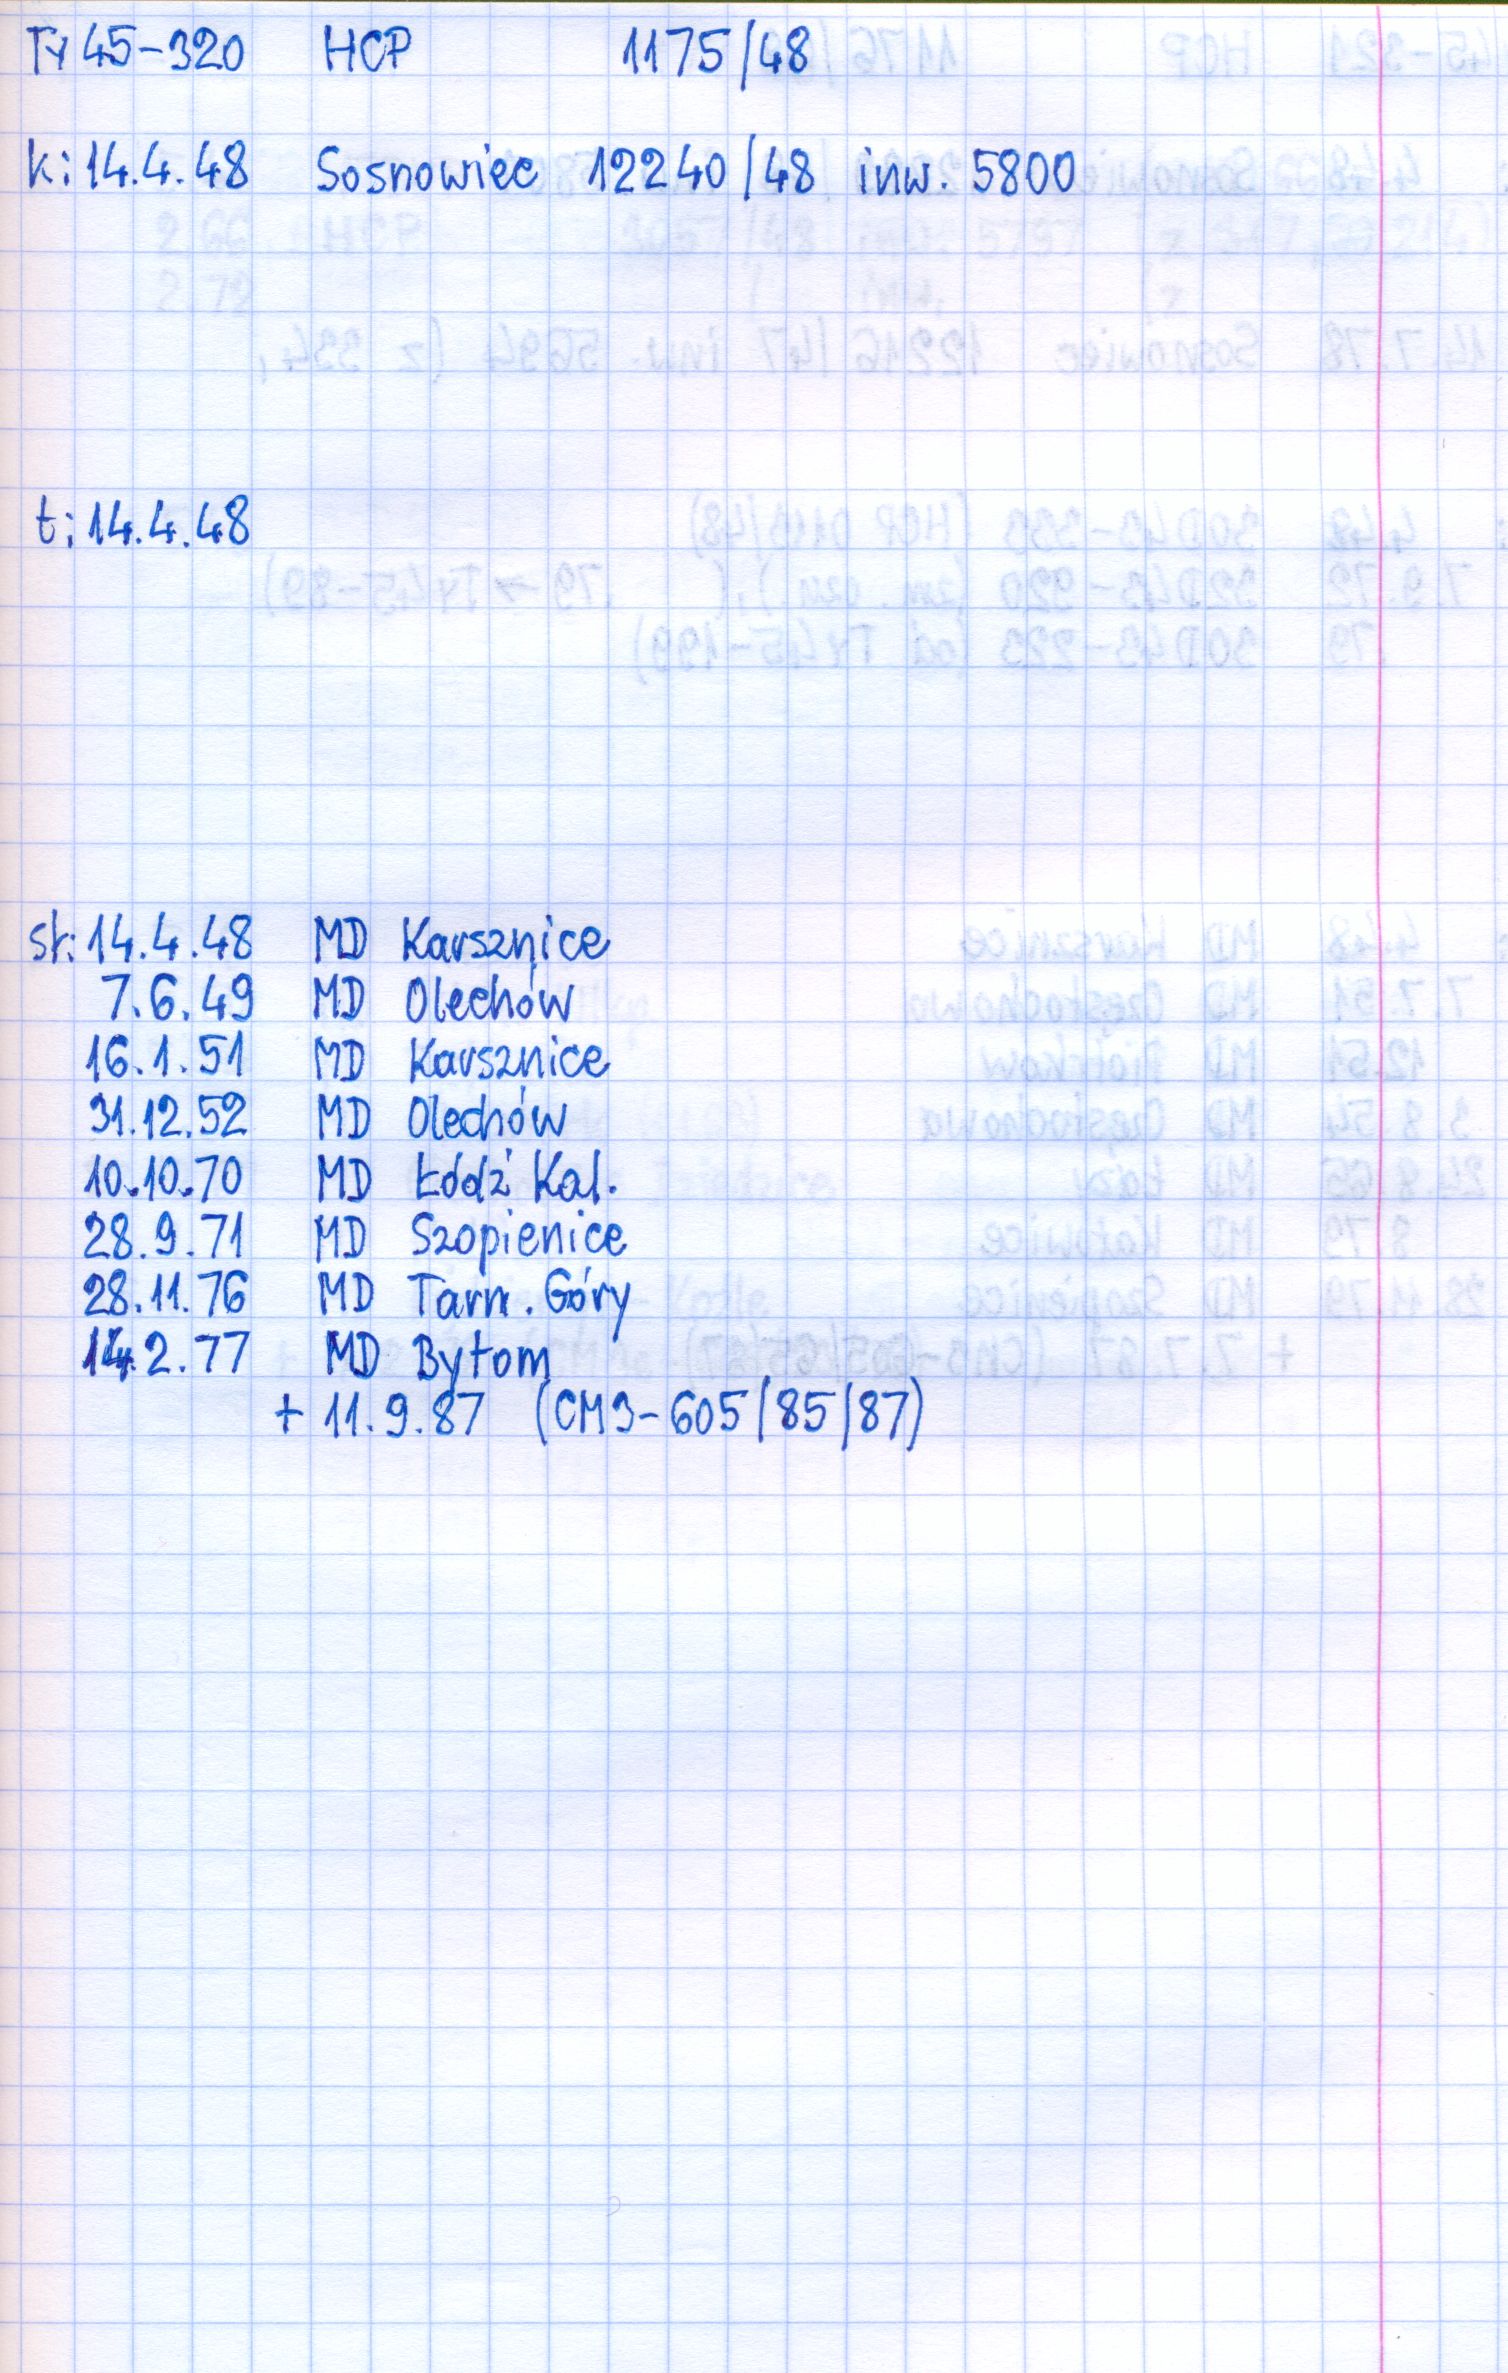 Ty45-320 HCP 1175/48
k: 14.4.48 Sosnowiec 12240/48 inw. 5800
t: 14.4.48
st: 14.4.48 MD Karsznice
7.6.49 MD Olechów
16.1.51 MD Karsznice
31.12.52 MD Olechów
10.10.70 MD Łódź Kal.
28.9.71 MD Szopienice
28.11.76 MD Tarn. Góry
14.2.77 MD Bytom
+ 11.9.87 (CM3-605/85/87)